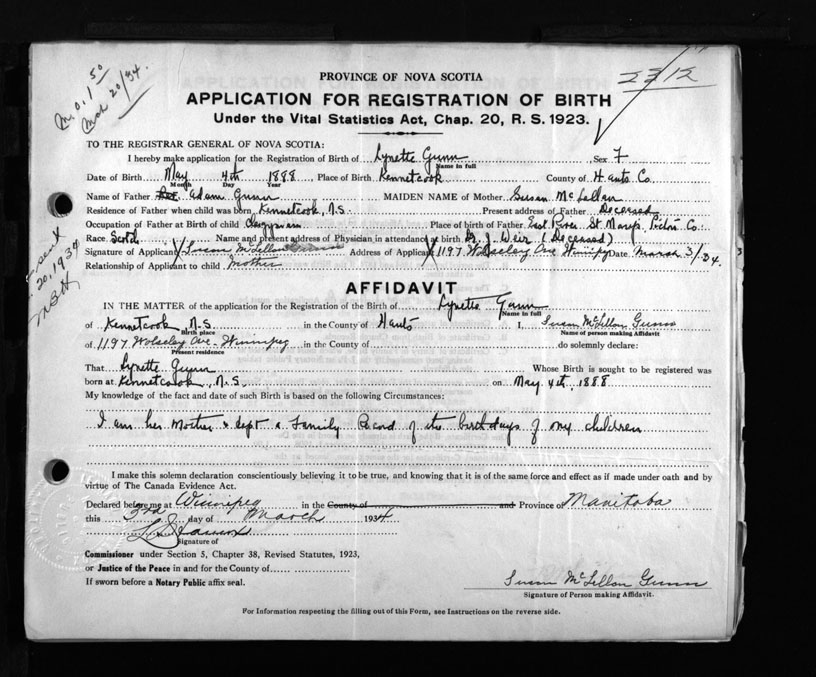 PROVINCE OF NOVA SCOTIA
APPLICATION FOR REGISTRATION OF BIRTH
Under the Vital Statistics Act, Chap. 20, R. S. 1923.
M.O. 1 50
Mch 20/34
2212
TO THE REGISTRAR GENERAL OF NOVA SCOTIA:
I hereby make application for the Registration of Birth of Lynette Gunn Sex F
Name in full
Date of Birth May 4th 1888 Place of Birth Kennetcook County of Hants Co.
Month Day Year
Name of Father Adam Gunn MAIDEN NAME of Mother Susan McLellan
Residence of Father when child was born Kennetcook, N.S. Present address of Father Deceased
Occupation of Father at Birth of child Clergyman Place of birth of Father East River St. Marys, Pictou Co.
Race Scotch Name and present address of Physician in attendance at birth J. Weir (Deceased)
Signature of Applicant Susan McLellan Gunn Address of Applicant 1197 Wolseley Ave Winnipeg Date March 3/34.
Relationship of Applicant to child Mother
20, 1934
AFFIDAVIT
IN THE MATTER of the application for the Registration of the Birth of Lynette Gunn
Name in full
of Kennetcook N.S. in the County of Hants I, Susan McLellan Gunn
Birth place Name of person making Affidavit
of 1197 Wolseley Ave. Winnipeg in the County of do solemnly declare:
Present residence
That Lynette Gunn Whose Birth is sought to be registered was
born at Kennetcook, N.S. on May 4th, 1888
My knowledge of the fact and date of such Birth is based on the following Circumstances:
I am her Mother & kept a Family Record of the birthdays of my children
I make this solemn declaration conscientiously believing it to be true, and knowing that it is of the same force and effect as if made under oath and by
virtue of The Canada Evidence Act.
Declared before me at Winnipeg in the County of and Province of Manitoba
this 3rd day of March 1934
Signature of
Commissioner under Section 5, Chapter 38, Revised Statutes, 1923,
or Justice of the Peace in and for the County of
If sworn before a Notary Public affix seal.
Susan McLellan Gunn
Signature of Person making Affidavit.
For Information respecting the filling out of this Form, see Instructions on the reverse side.